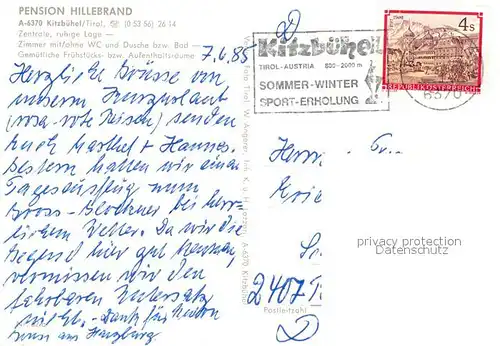 PENSION HILLEBRAND
A-6370 Kitzbühel/Tirol, ☏ (0 53 56) 26 14
Zentrale, ruhige Lage —
Zimmer mit/ohne WC und Dusche bzw. Bad —
Gemütliche Frühstücks- bzw. Aufenthaltsräume
7.6.85
Herzliche Grüsse von
unserem Kurzurlaub
(rosa-rote Reisen) senden
Euch Marthel + Hannes.
Gestern hatten wir einen
Tagesausflug zum
Gross-Glockner bei herr-
lichem Wetter. Da wir die
Gegend hier gut kennen,
vermissen wir den
fahrbaren Untersatz
nicht. - Dank für
aus Harzburg
A-6370 Kitzbühel
D
Kitzbühel
TIROL-AUSTRIA 800-2000 m
SOMMER-WINTER
SPORT-ERHOLUNG
6370
4 s
REPUBLIK ÖSTERREICH
Herrn
2407
Postleitzahl
D
privacy protection
Datenschutz